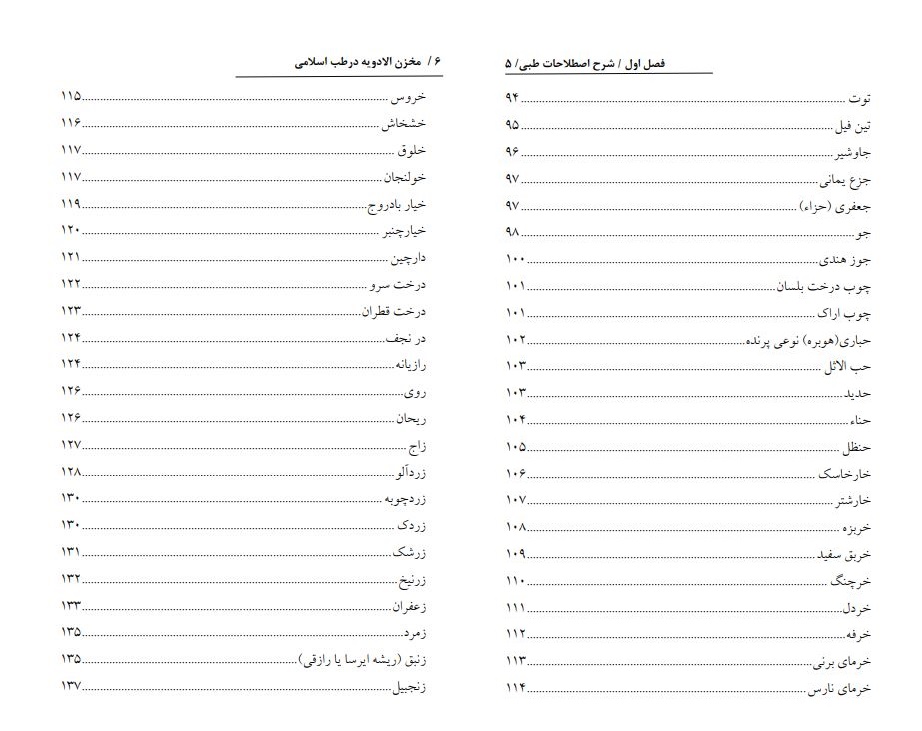 فصل اول / شرح اصطلاحات طبی/ ۵
توت ........ ۹۴
تین فیل ........ ۹۵
جاوشیر ........ ۹۶
جزع یمانی ........ ۹۷
جعفری (حزاء) ........ ۹۷
جو ........ ۹۸
جوز هندی ........ ۱۰۰
چوب درخت بلسان ........ ۱۰۱
چوب اراک ........ ۱۰۱
حباری(هوبره) نوعی پرنده ........ ۱۰۲
حب الاثل ........ ۱۰۳
حدید ........ ۱۰۳
حناء ........ ۱۰۴
حنظل ........ ۱۰۵
خارخاسک ........ ۱۰۶
خارشتر ........ ۱۰۷
خربزه ........ ۱۰۸
خربق سفید ........ ۱۰۹
خرچنگ ........ ۱۱۰
خردل ........ ۱۱۱
خرفه ........ ۱۱۲
خرمای برنی ........ ۱۱۳
خرمای نارس ........ ۱۱۴
۶ / مخزن الادویه درطب اسلامی
خروس ........ ۱۱۵
خشخاش ........ ۱۱۶
خلوق ........ ۱۱۷
خولنجان ........ ۱۱۷
خیار بادروج ........ ۱۱۹
خیارچنبر ........ ۱۲۰
دارچین ........ ۱۲۱
درخت سرو ........ ۱۲۲
درخت قطران ........ ۱۲۳
در نجف ........ ۱۲۴
رازیانه ........ ۱۲۴
روی ........ ۱۲۶
ریحان ........ ۱۲۶
زاج ........ ۱۲۷
زردآلو ........ ۱۲۸
زردچوبه ........ ۱۳۰
زردک ........ ۱۳۰
زرشک ........ ۱۳۱
زرنیخ ........ ۱۳۲
زعفران ........ ۱۳۳
زمرد ........ ۱۳۵
زنبق (ریشه ایرسا یا رازقی) ........ ۱۳۵
زنجبیل ........ ۱۳۷